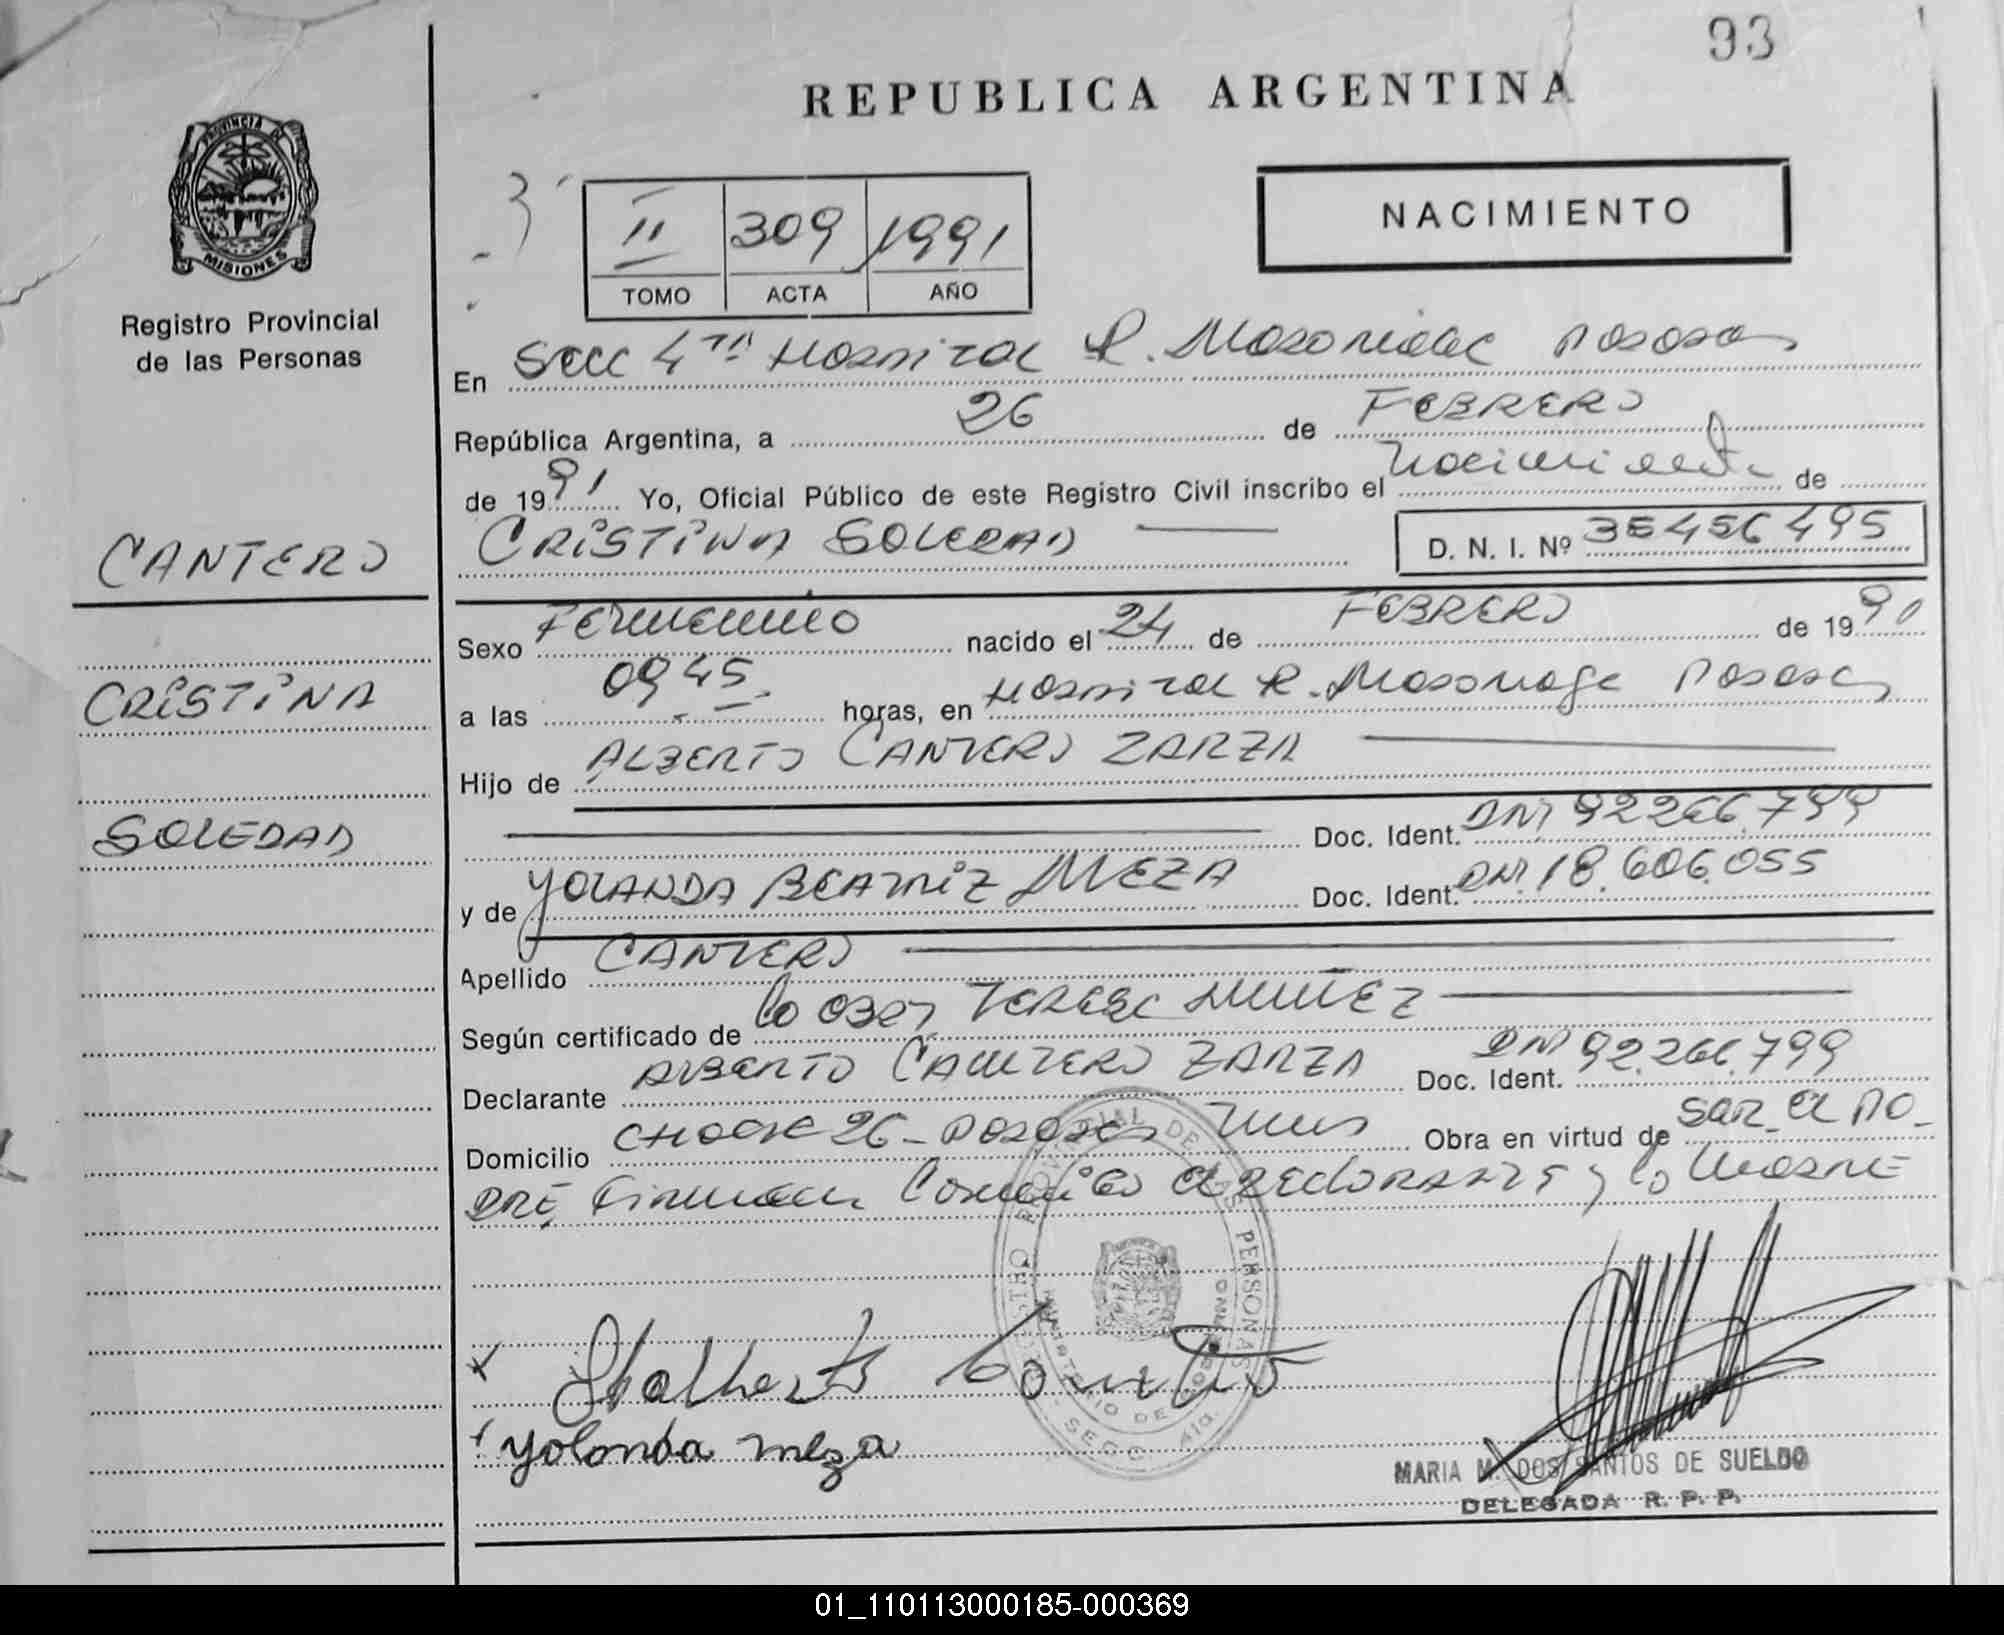 93
REPUBLICA ARGENTINA
PROVINCIA DE
MISIONES
Registro Provincial
de las Personas
NACIMIENTO
II 309 1991
TOMO ACTA AÑO
En Secc 4ta Hospital R. Madariaga Posadas
República Argentina, a 26 de FEBRERO
de 1991 Yo, Oficial Público de este Registro Civil inscribo el Nacimiento de
CRISTINA SOLEDAD D. N. I. Nº 35456495
CANTERO
CRISTINA
SOLEDAD
Sexo Femenino nacido el 24 de FEBRERO de 19
a las 09,45 horas, en Hospital R. Madariaga Posadas
Hijo de ALBERTO CANTERO ZARZA
Doc. Ident. DNI 92266.799
y de YOLANDA BEATRIZ MEZA Doc. Ident. DNI. 18.606.055
Apellido CANTERO
Según certificado de la Obst TERESA NUÑEZ
Declarante ALBERTO CANTERO ZARZA Doc. Ident. DNI 92.266.799
Domicilio CHACRA 26 - Posadas Mnes Obra en virtud de SER EL PA-
DRE, Firman Conmigo el declarante y la Madre
REGISTRO PROVINCIAL DE LAS PERSONAS
MINISTERIO DE GOBIERNO
SECC. 4ta.
Yolanda meza
MARIA M. DOS SANTOS DE SUELDO
DELEGADA R. P. P.
01_110113000185-000369